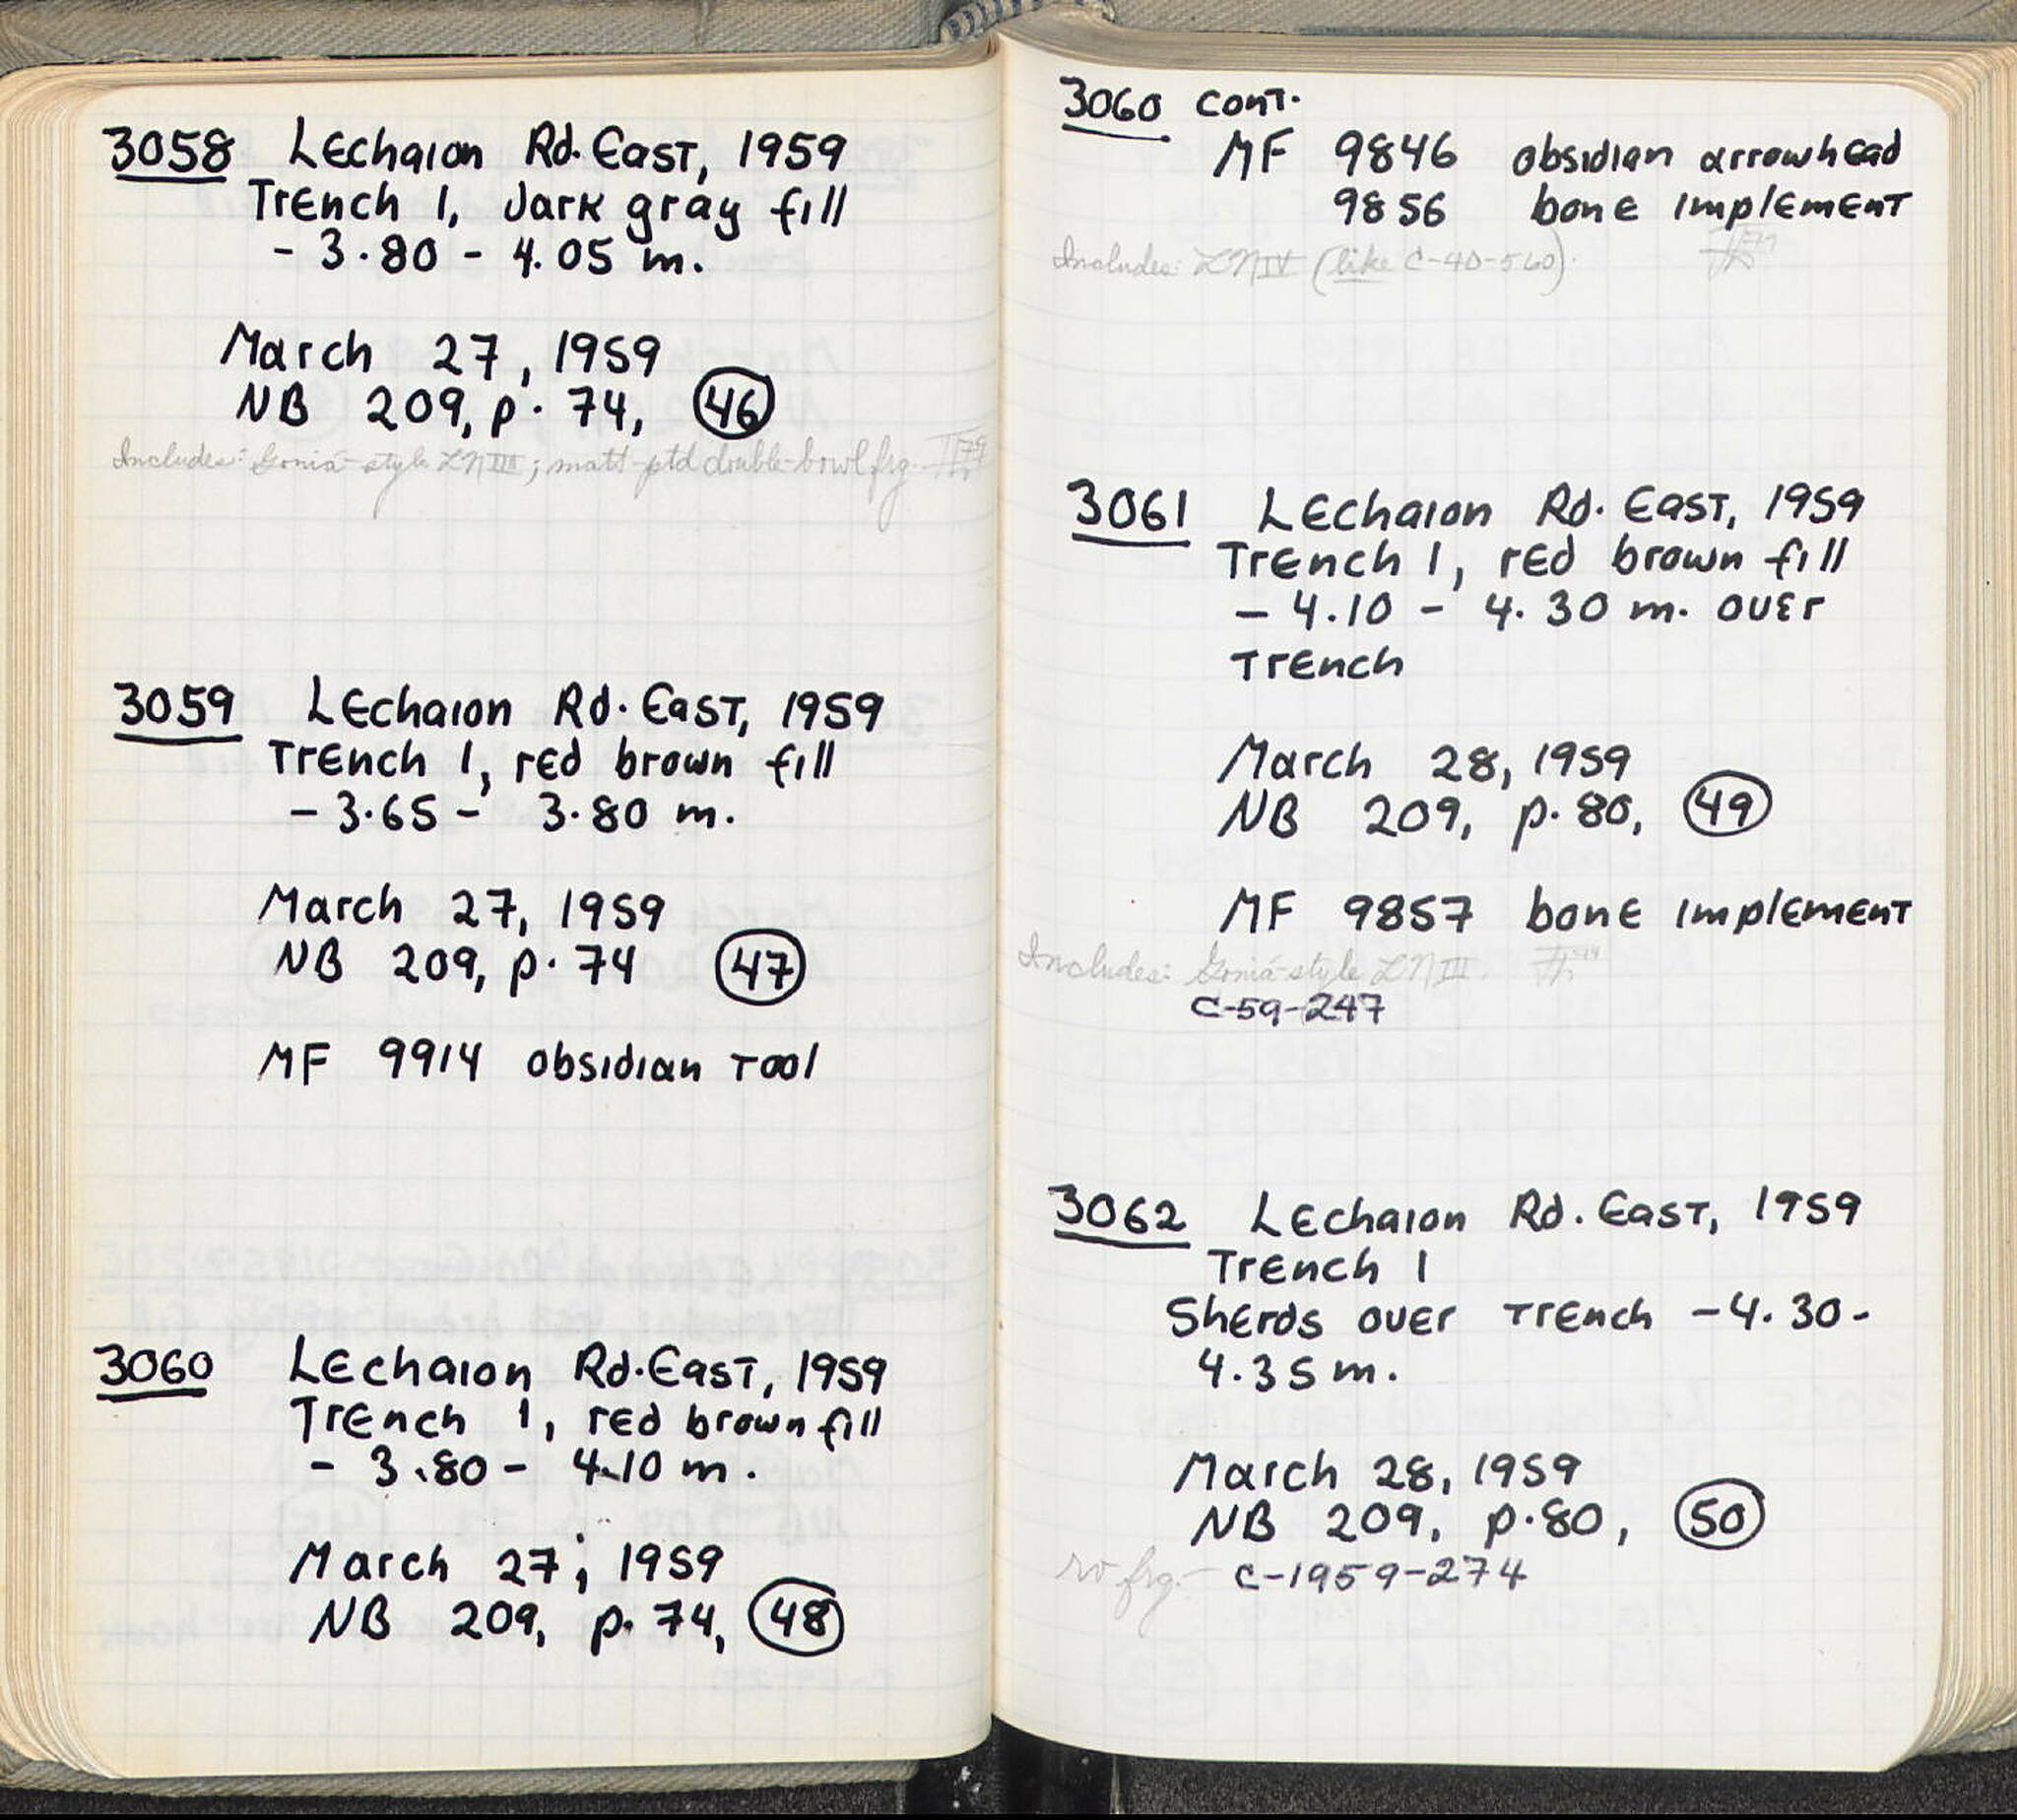 3058 Lechaion Rd. East, 1959
Trench 1, dark gray fill
- 3.80 - 4.05 m.
March 27, 1959
NB 209, p. 74, 46
Includes: Gonia-style LN III; matt-ptd double-bowl frg.
3059 Lechaion Rd. East, 1959
Trench 1, red brown fill
- 3.65 - 3.80 m.
March 27, 1959
NB 209, p. 74 47
MF 9914 obsidian tool
3060 Lechaion Rd. East, 1959
Trench 1, red brown fill
- 3.80 - 4.10 m.
March 27, 1959
NB 209, p. 74, 48
3060 cont.
MF 9846 obsidian arrowhead
9856 bone implement
Includes: LN IV (like C-40-560).
3061 Lechaion Rd. East, 1959
Trench 1, red brown fill
- 4.10 - 4.30 m. over
trench
March 28, 1959
NB 209, p. 80, 49
MF 9857 bone implement
Includes: Gonia-style LN III.
C-59-247
3062 Lechaion Rd. East, 1959
Trench 1
Sherds over trench -4.30-
4.35 m.
March 28, 1959
NB 209, p. 80, 50
frg. - C-1959-274